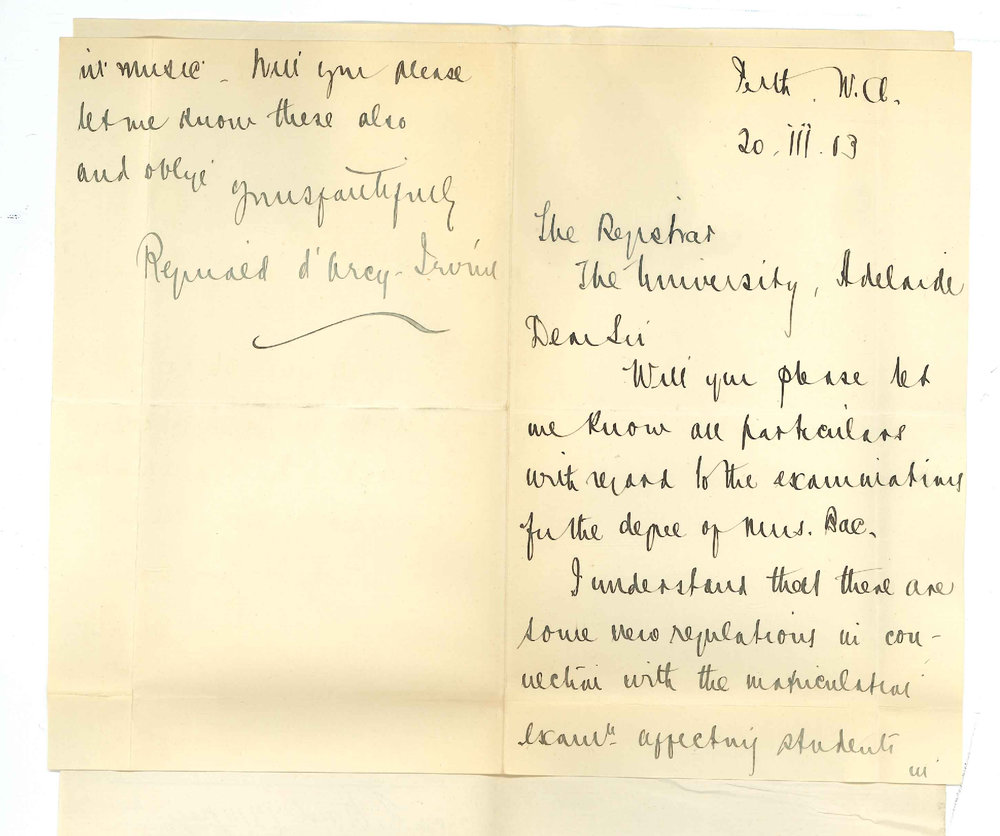 Perth. W.A.
20.III.03
The Registrar
The University, Adelaide
Dear Sir
Will you please let
me know all particulars
with regard to the examinations
for the degree of Mus. Bac.
I understand that there are
some new regulations in con-
nection with the matriculation
examn. affecting students
in
in music. Will you please
let me know these also
and oblige
yours faithfully
Reginald d'Arcy-Irvine